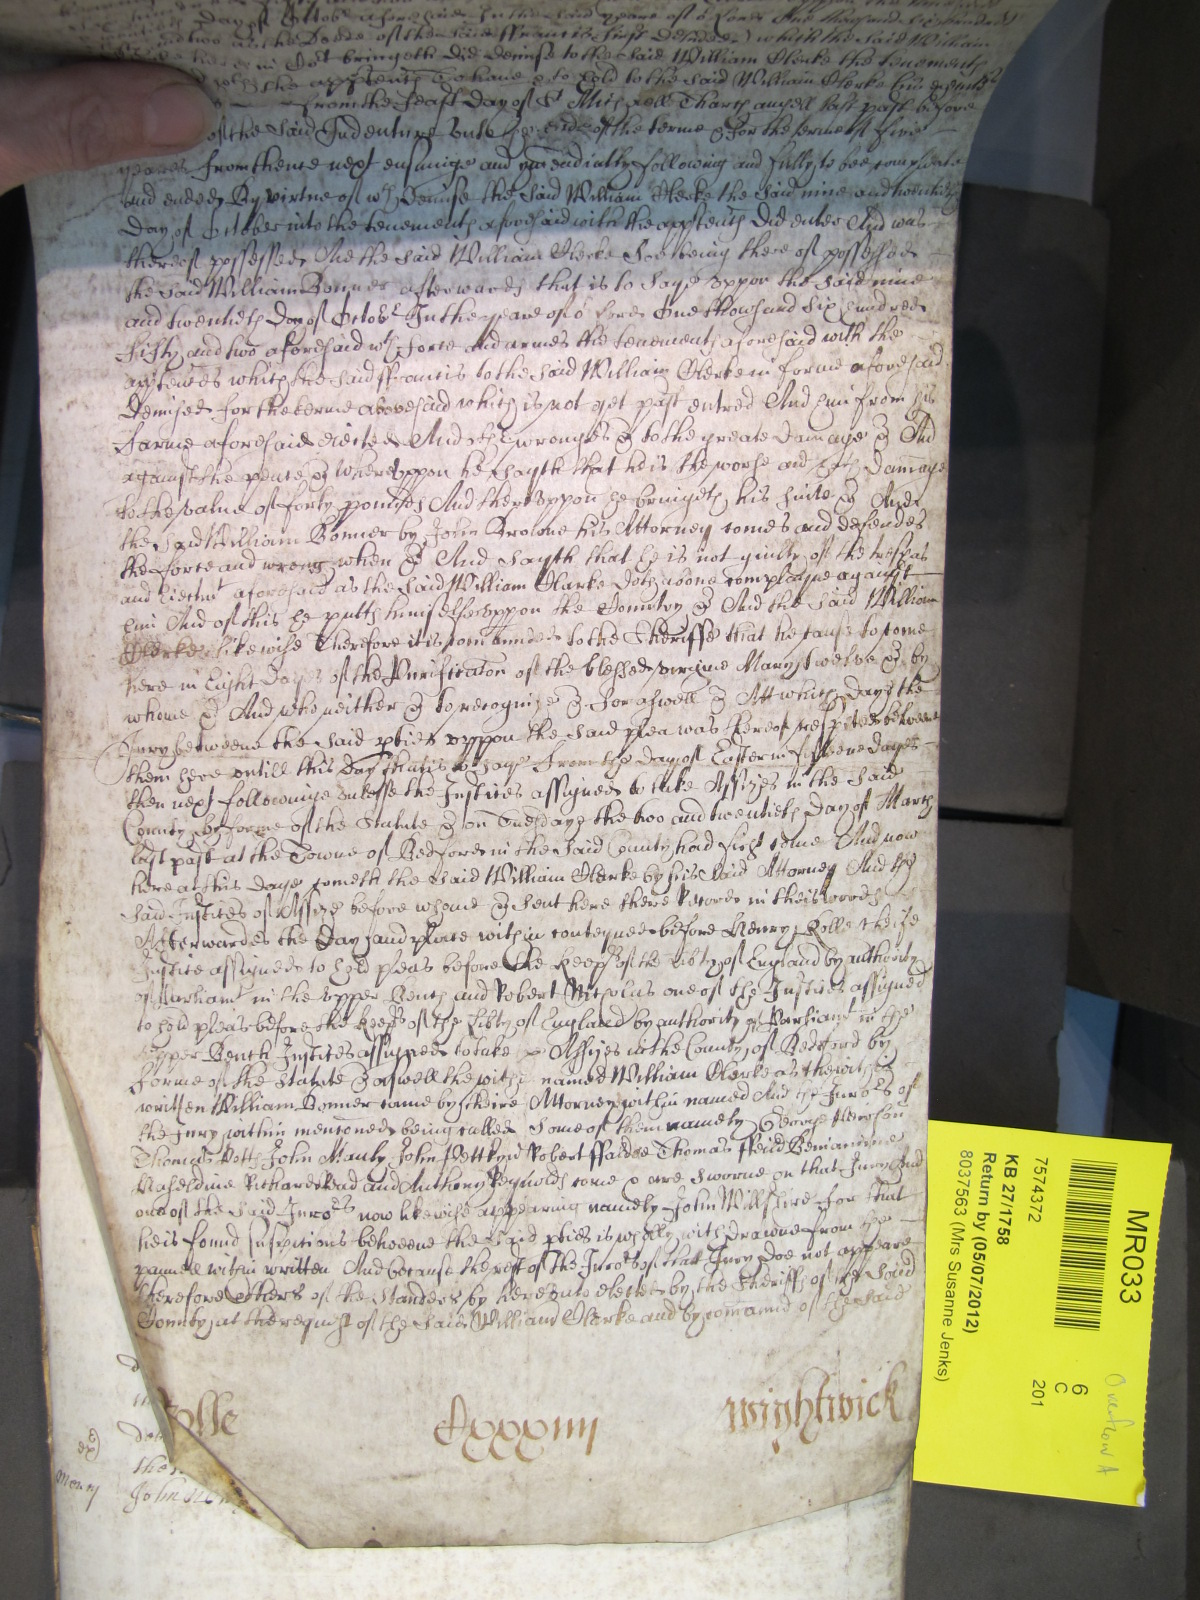 Day of October aforesaid In the said yeare of oʳ Lord One thousand six hundred
the said William
did demise to the said William Clerke the tenements
To have & to hold to the said William Clerke his assignes
From the Feast Day of Sᵗ Michaell Tharchangell last past before
of the said Indenture unto the ende of the terme & for the terme of five
yeares from thence next ensuinge and ymediatly following and fully to bee compleate
and ended By virtue of wᶜʰ Demise the said William Clerke the said nine and twentieth
day of October into the tenements aforesaid with the apptenñces did enter And was
thereof possessed And the said William Clerke soe being thereof possessed
the said William Bonner afterwards that is to saye uppon the said nine
and twentieth Day of Octobʳ In the yeare of oʳ Lord One thousand six hundred
fifty and two aforesaid wᵗʰ force and armes the tenements aforesaid with the
apptences which the said ffrancis to the said William Clerke in forme aforesaid
demised for the terme abovesaid which is not yet past entred And him from his
farme aforesaid eiected And other wronges &c to the greate damage &c And
against the peace &c Whereuppon he sayth that he is the worse and hath damage
to the value of forty pounds And thereuppon he bringeth his suite &c And
the said William Bonner by John Browne his Attorney comes and defendes
the force and wrong when &c And sayth that he is not guilty of the trespas
and Eiectmᵗ aforesaid as the said William Clarke doth above complayne against
him And of this he putts himselfe uppon the Country &c And the said William
Clerke likewise Therefore it is commanded to the Sheriffe that he cause to come
here in Eight Dayes of the Purificaton of the blessed virgine Mary twelve &c by
whome &c And who neither &c to recognize &c For aswell &c Att which Day the
Jury betweene the said pties uppon the said plea was thereof respited betweene
them here untill this Day that is to saye From the Day of Easter in fifteene Dayes
then next followinge unlesse the Justices assigned to take Assizes in the said
County by forme of the Statute &c on Tuesday the two and twentieth day of March
last past at the Towne of Bedford in the said County had first come And now
here at this Daye cometh the said William Clerke by his said Attorney And the
said Justices of Assize before whome &c sent here there Record in theis words
Afterwardes the Day and place within conteyned before Henry Rolle cheife
Justice assigned to hold pleas before the Keepʳˢ of the libty of England by authority
of Parliamᵗ in the upper Bench and Robert Nicholas one of the Justices assigned
to hold pleas before the Keepʳˢ of the Libty of England by authority of Parliamᵗ in the
upper Bench Justices assigned to take Assizes in the County of Bedford by
forme of the Statute &c aswell the within named William Clerke as the within
written William Bonner came by theire Attorneys within named And the Juroʳˢ of
the Jury within mentioned being called some of them namely George Hewson
Thomas Potts John Manly John Pettkyn Robert ffaldoe Thomas ffeild Beniamine
Richard Read and Anthony Reynolds come & are sworne on that Jury And
one of the said Juroʳˢ now likewise appearing namely John Willshire for that
he is found suspitious betweene the said pties is wholly withdrawne from the
pannell within written And because the rest of the Jurors of that Jury Doe not appeare
therefore others of the Standers by hereunto elected by the Sheriffe of the said
County at the request of the said William Clerke and by comand of the said
Rolle Cxxxiiij Wightwick
John
MR033
6
C
201
7574372
KB 27/1758
Return by (05/07/2012)
8037563 (Mrs Susanne Jenks)
Overflow A